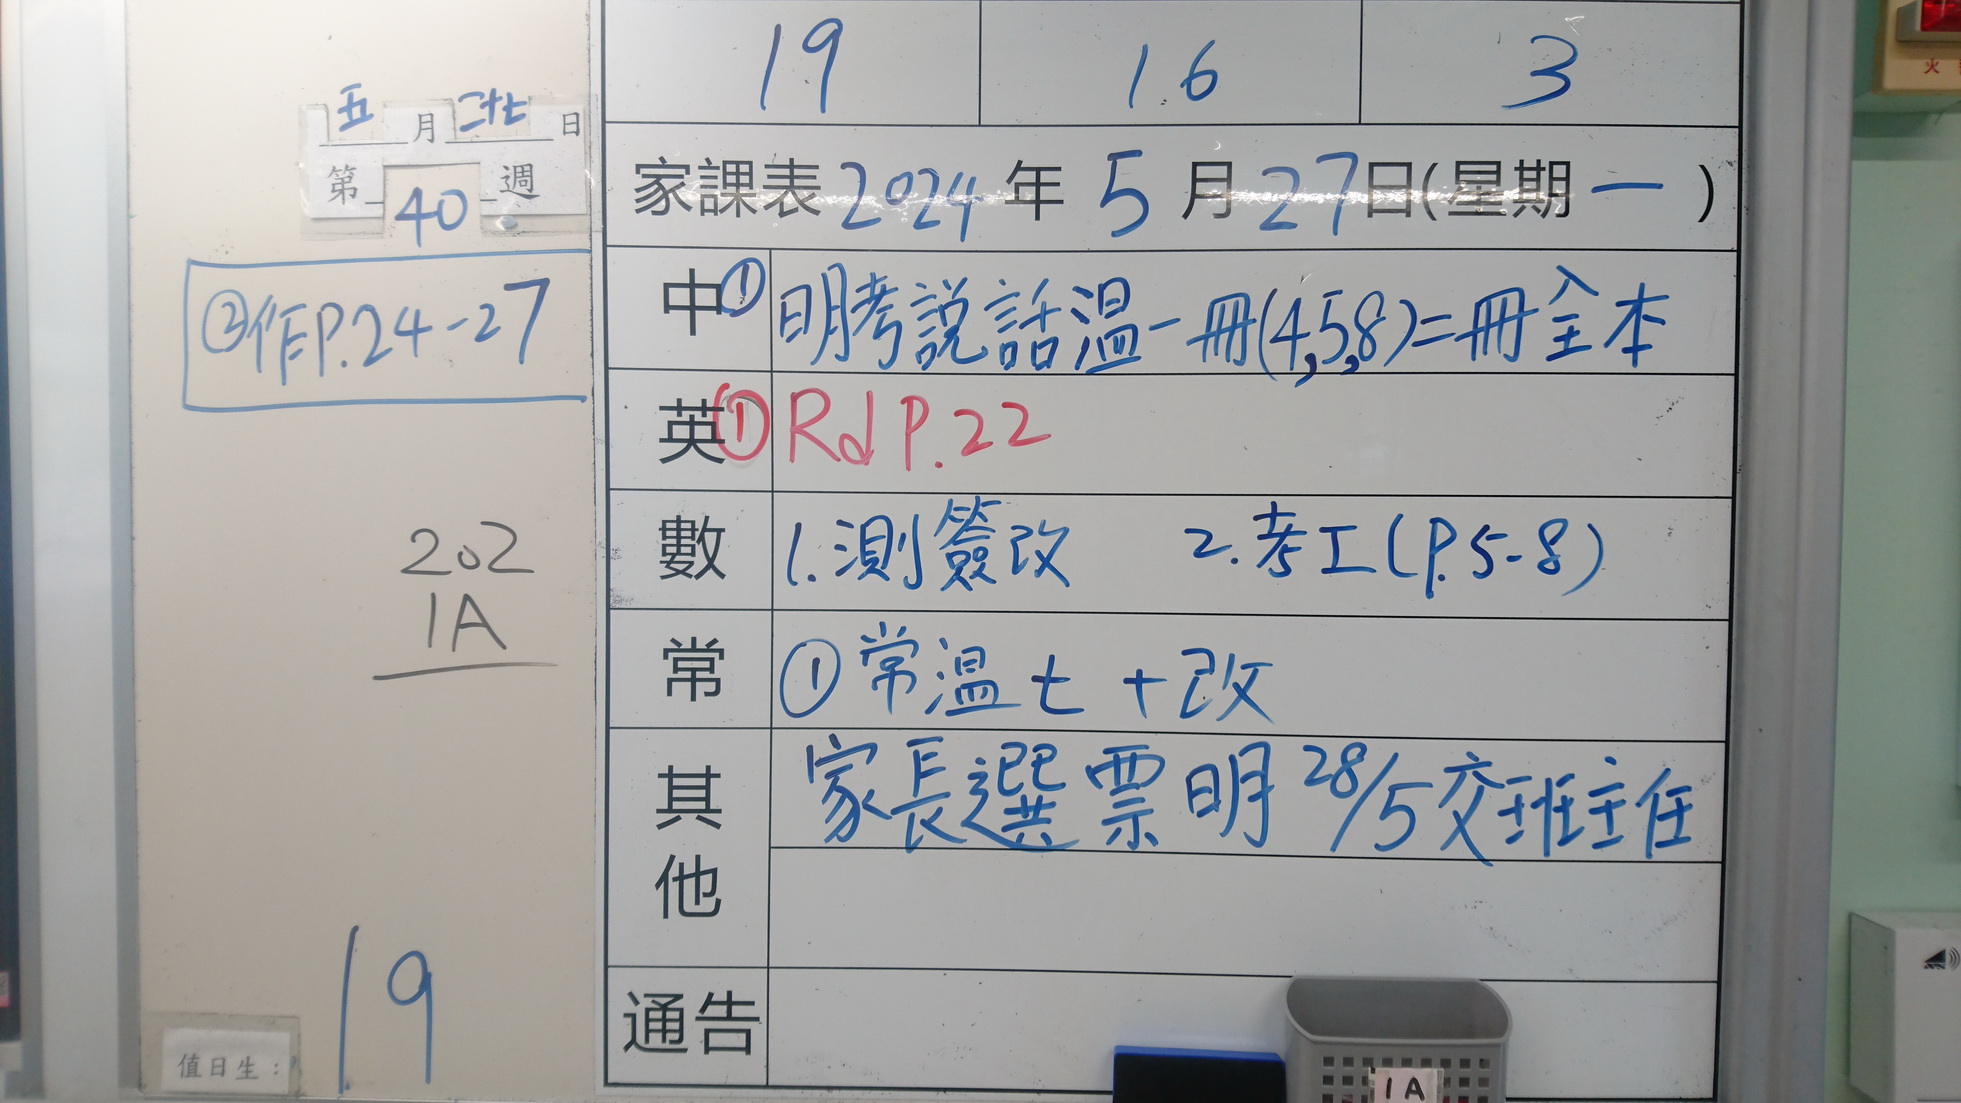 五月二十七日
第40週
②作P.24-27
202
1A
19
值日生:
19 16 3
家課表2024年5月27日(星期一)
中①明考說話溫一冊(4,5,8)二冊全本
英①Rd P.22
數 1.測簽改 2.考工(P.5-8)
常 ①常溫七+改
其他 家長選票明28/5交班主任
通告
1A
火